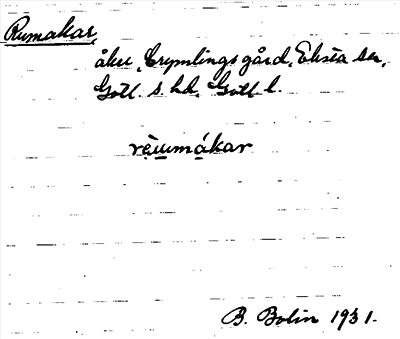 Rumakar,
åker, Grymlings gård, Eksta sn,
Gotl. s. hd, Gotl l.
rèumákar
B. Bolin 1931.